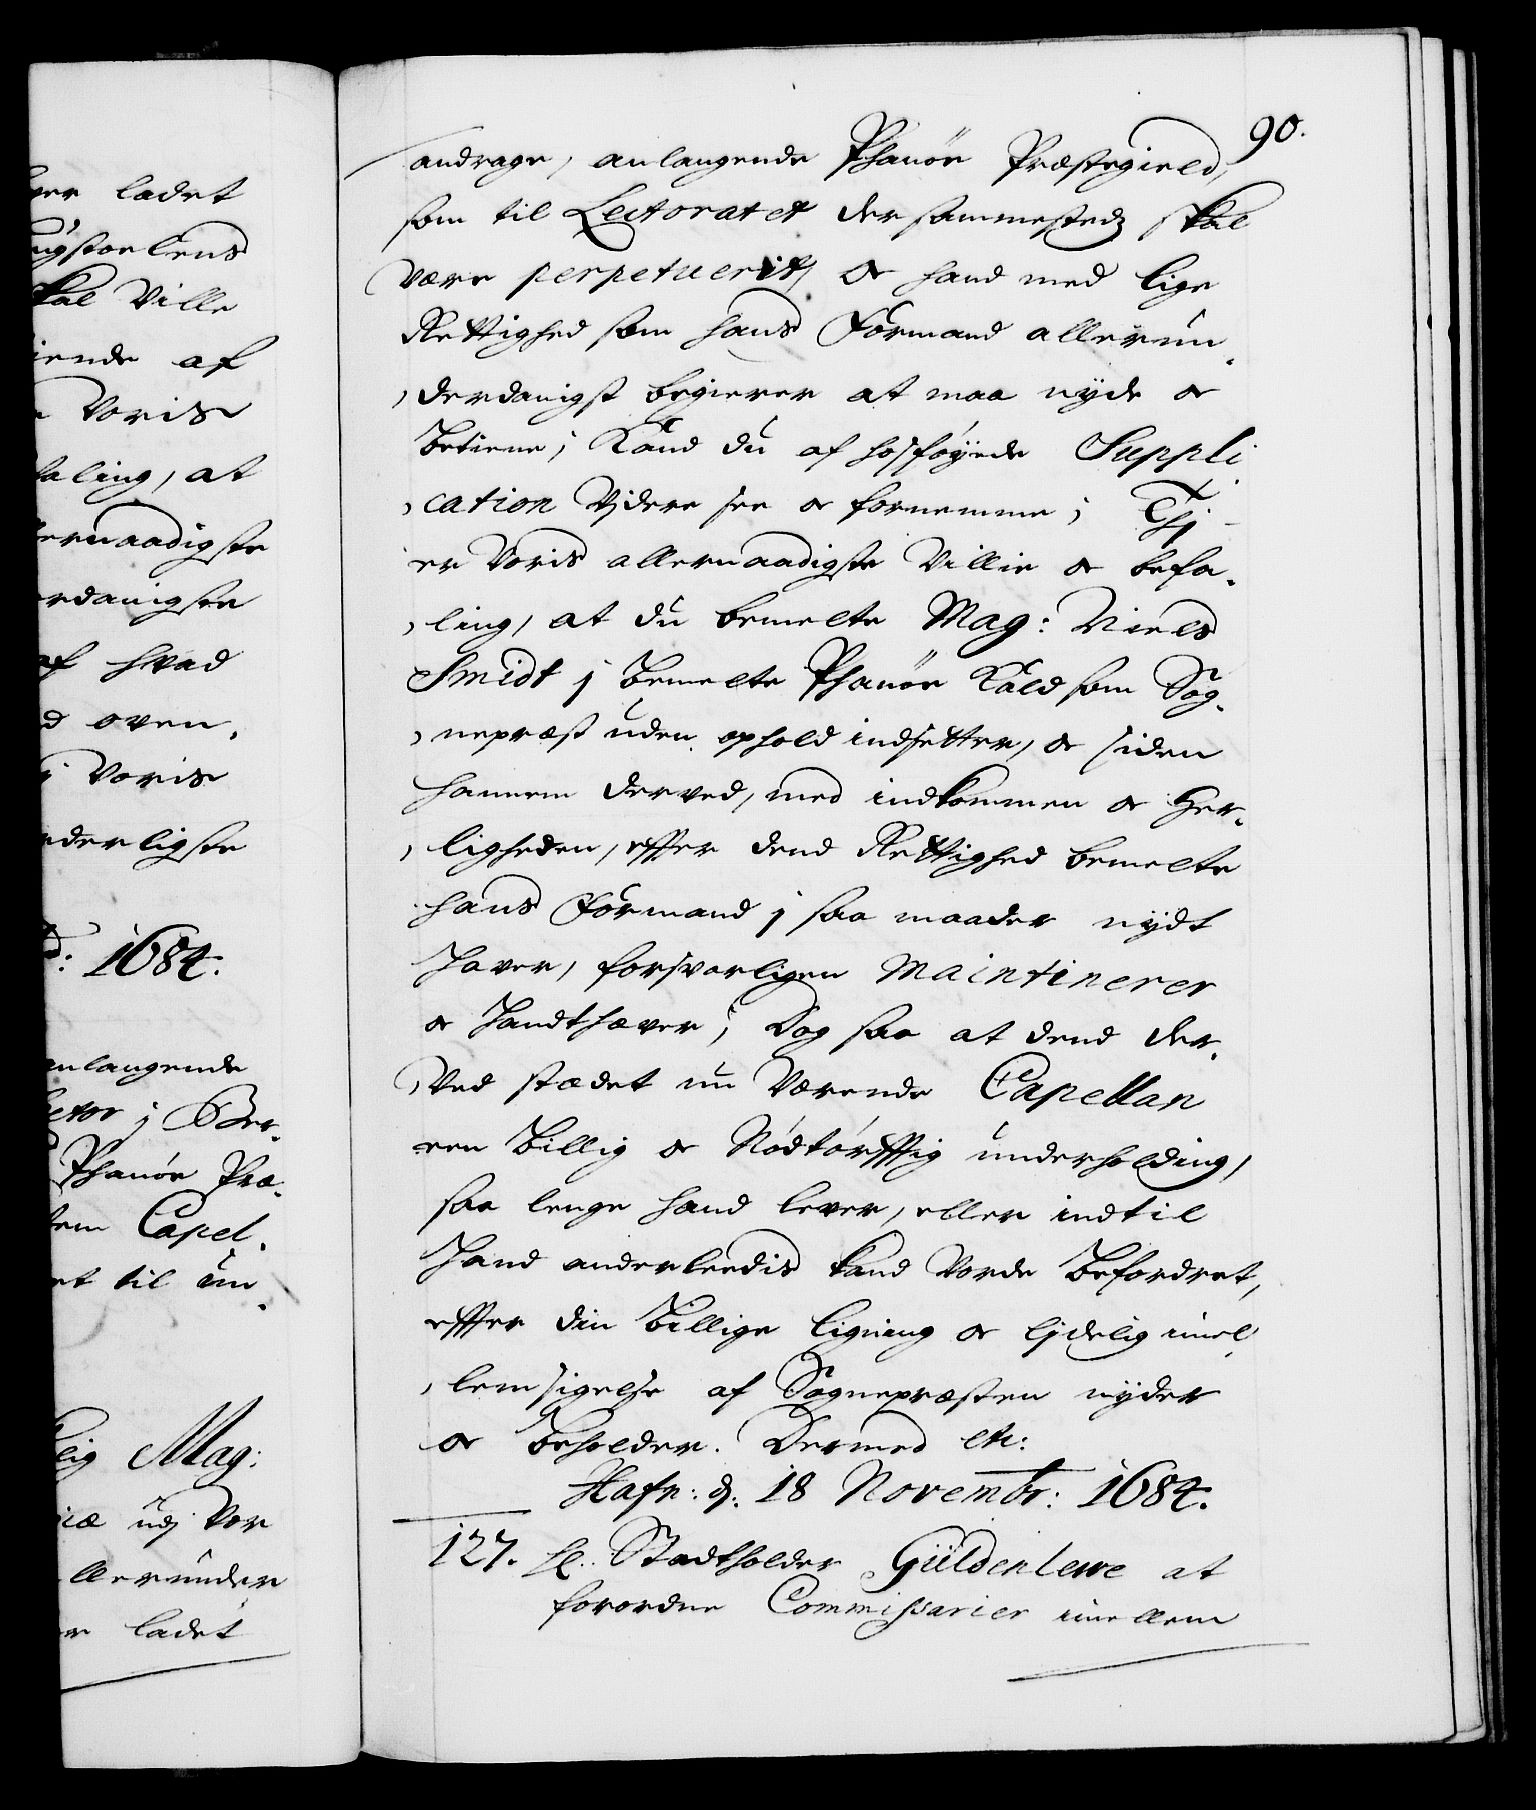 ver ladet
ugstoelens
kal Ville
iende af
Voris
faling, at
lernaadigste
erdanigste
af hvad
d oven„
j Voris
nderligste
d: 1684.
anlangende
Lector j Ber„
Phanöe Præ„
tem Capel„
et til un„
lig Mag:
niæ udj Vor
llerunder
er ladet
90.
andrage, anlangende Phanöe Præstegield,
som til Lectoratet der sammesteds skal
være perpetuerit, Or hand med lige
Rettighed som hans Formand allerun„
„derdanigst begierer at maa nyde or
betiene; Kand du af hosföyede Suppli„
„cation Vjdere see or fornemme; Thj
er Voris allernaadigste Villie or befa„
„ling, at du bemelte Mag: Niels
Smidt j bemelte Phanöe Kald som Sog„
„nepræst uden ophold indsetter, or siden
hannem derved, med indkommen or Her„
„ligheden, efter dend Rettighed bemelte
hans Formand j saa maader nydt
haver, forsvarligen Maintinerer
or handthæver; Dog saa at dend der„
„Ved stædet nu Værende Capellan
een billig or Nödtörfftig underholding,
saa lenge hand lever, eller indtil
hand anderleedis kand Vorde befordret,
effter din billige ligning or ljdelig imel„
„lemsigelse af Sognepræsten nyder
or beholder. Dermed etc:
Hafn: d: 18 Novembr: 1684.
127. Hr. Stadtholder Güldenlewe at
forordne Commissarier imellem